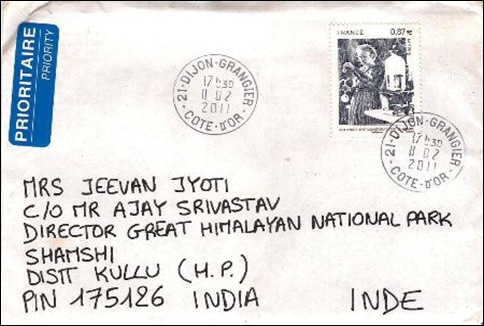 PRIORITAIRE
PRIORITY
21-DIJON-GRANGIER-
17H30
11 02
2011
COTE-D'OR
FRANCE
0,87€
21-DIJON-GRANGIER-
17H30
11 02
2011
COTE-D'OR
MRS JEEVAN JYOTI
C/O MR AJAY SRIVASTAV
DIRECTOR GREAT HIMALAYAN NATIONAL PARK
SHAMSHI
DISTT KULLU (H.P.)
PIN 175126 INDIA INDE